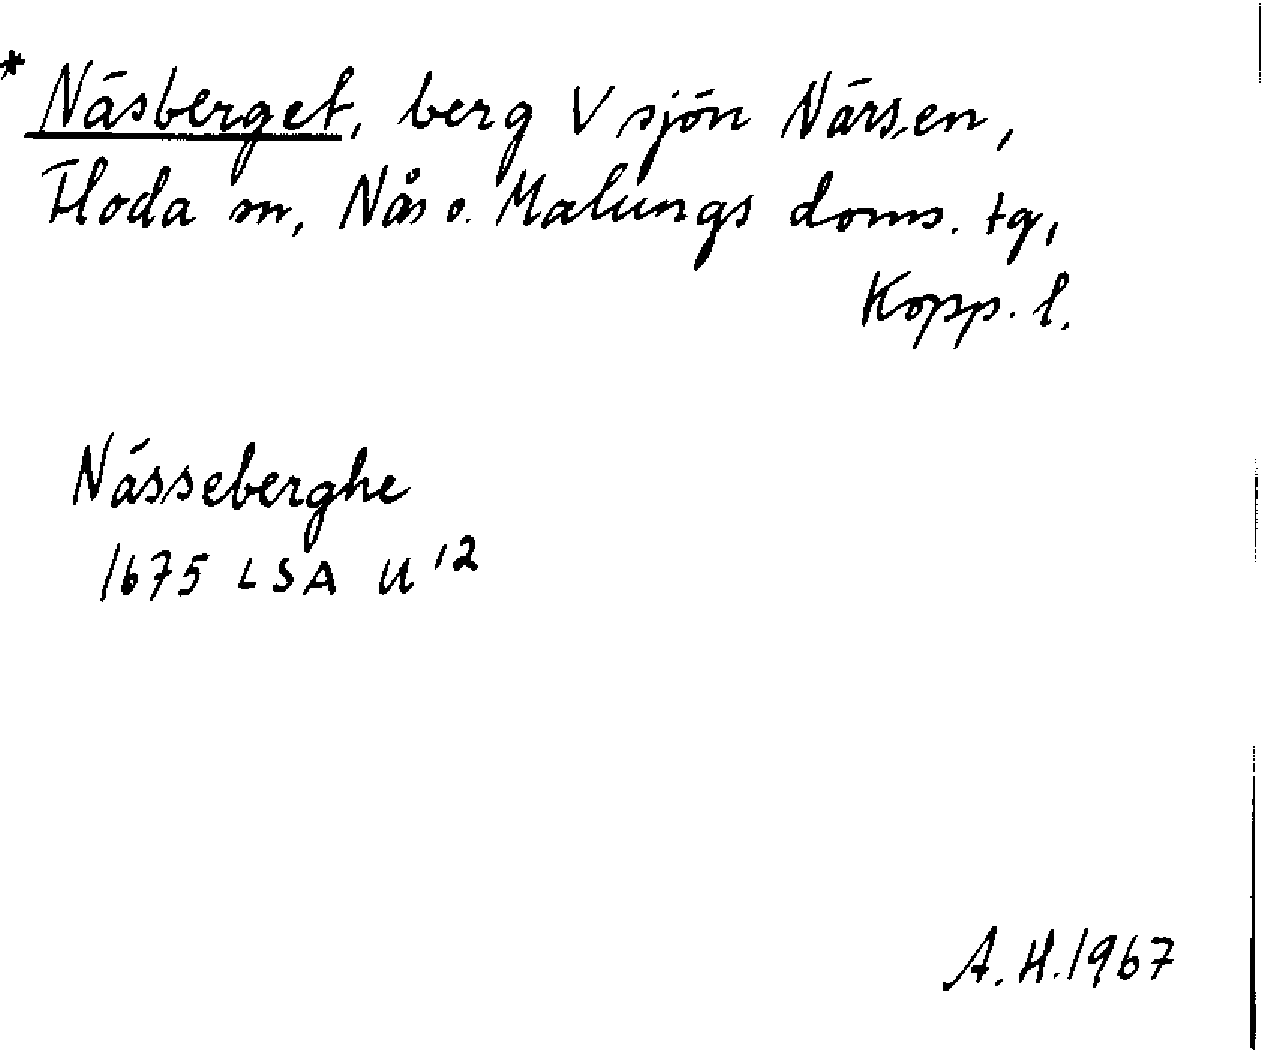 * Näsberget, berg V sjön Närsen,
Floda sn, Nås o. Malungs doms. tg,
Kopp. l.
Nässeberghe
1675 LSA U 12
A. H. 1967